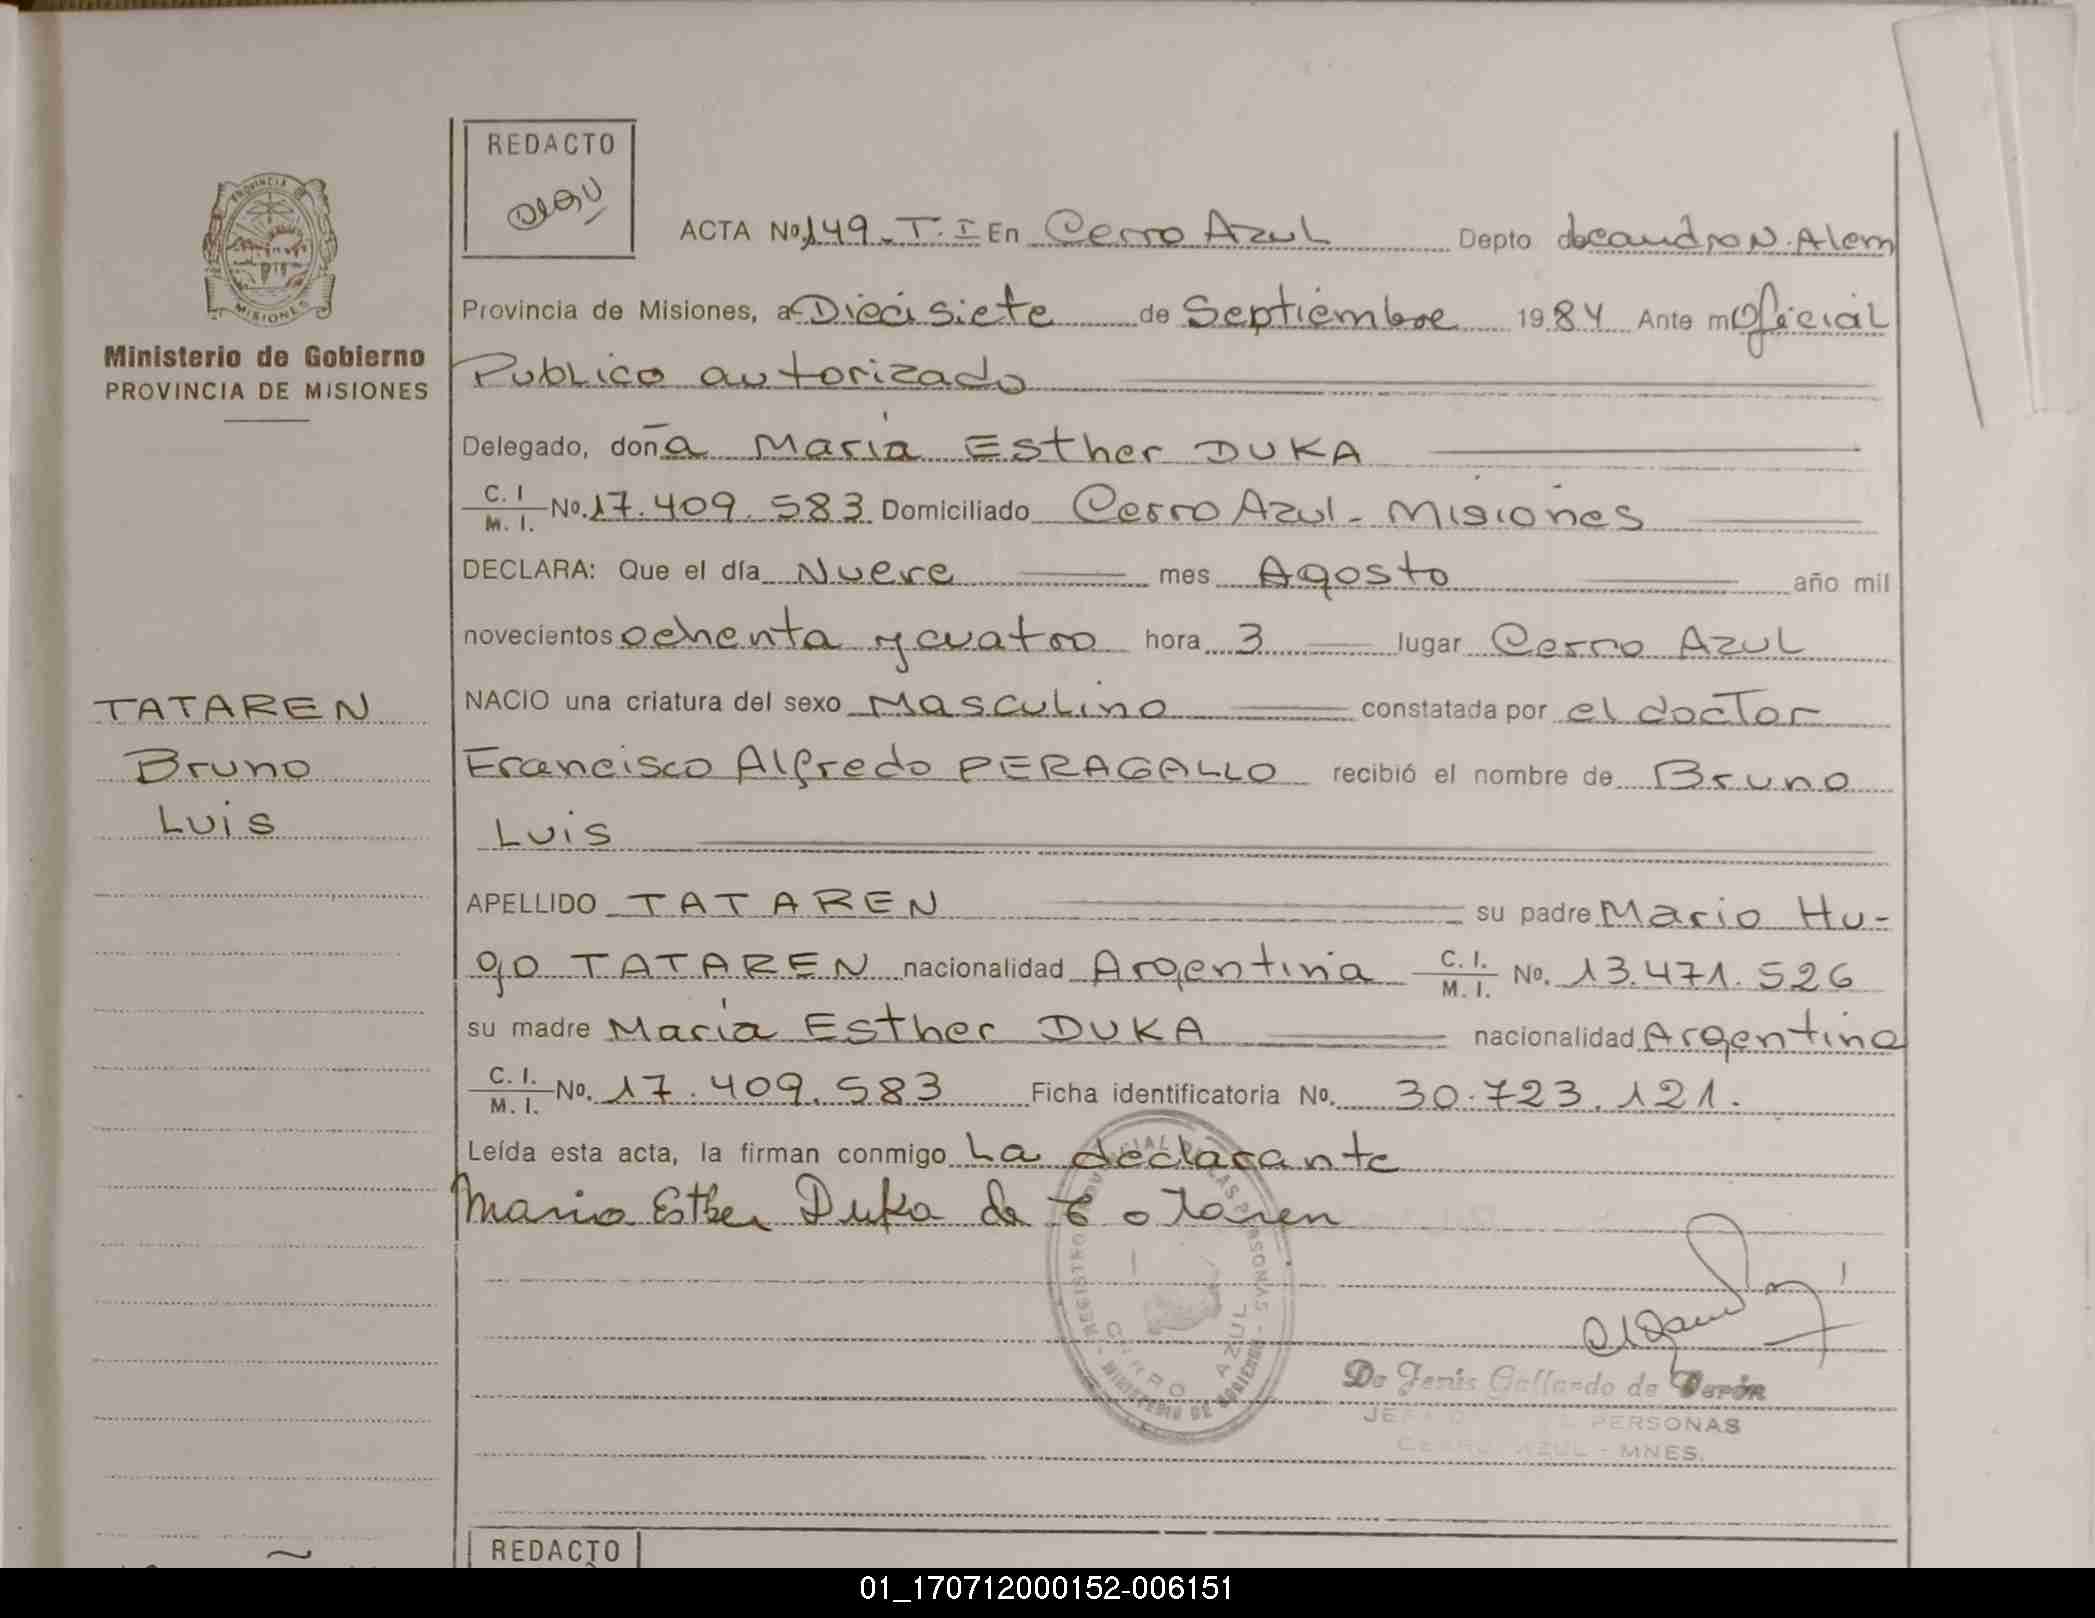 REDACTO
PROVINCIA DE
MISIONES
ACTA Nº 149-T.I En Cerro Azul Depto de Leandro N. Alem
Ministerio de Gobierno
PROVINCIA DE MISIONES
Provincia de Misiones, a Diecisiete de Septiembre 1984 Ante mi Oficial
Publico autorizado
Delegado, doña Maria Esther DUKA
C. I / M. I. Nº. 17.409.583 Domiciliado Cerro Azul - Misiones
DECLARA: Que el día Nueve mes Agosto año mil
novecientos ochenta y cuatro hora 3 lugar Cerro Azul
TATAREN
Bruno
Luis
NACIO una criatura del sexo Masculino constatada por el doctor
Francisco Alfredo PERAGALLO recibió el nombre de Bruno
Luis
APELLIDO TATAREN su padre Mario Hu-
go TATAREN nacionalidad Argentina C. I. / M. I. Nº. 13.471.526
su madre Maria Esther DUKA nacionalidad Argentina
C. I. / M. I. Nº. 17.409.583 Ficha identificatoria No. 30.723.121.
Leída esta acta, la firman conmigo La declarante
Maria Esther Duka de Tataren
REGISTRO PROVINCIAL DE LAS PERSONAS
CERRO AZUL
MINISTERIO DE GOBIERNO
Gallardo de
PERSONAS
CERRO AZUL - MNES.
REDACTO
01_170712000152-006151